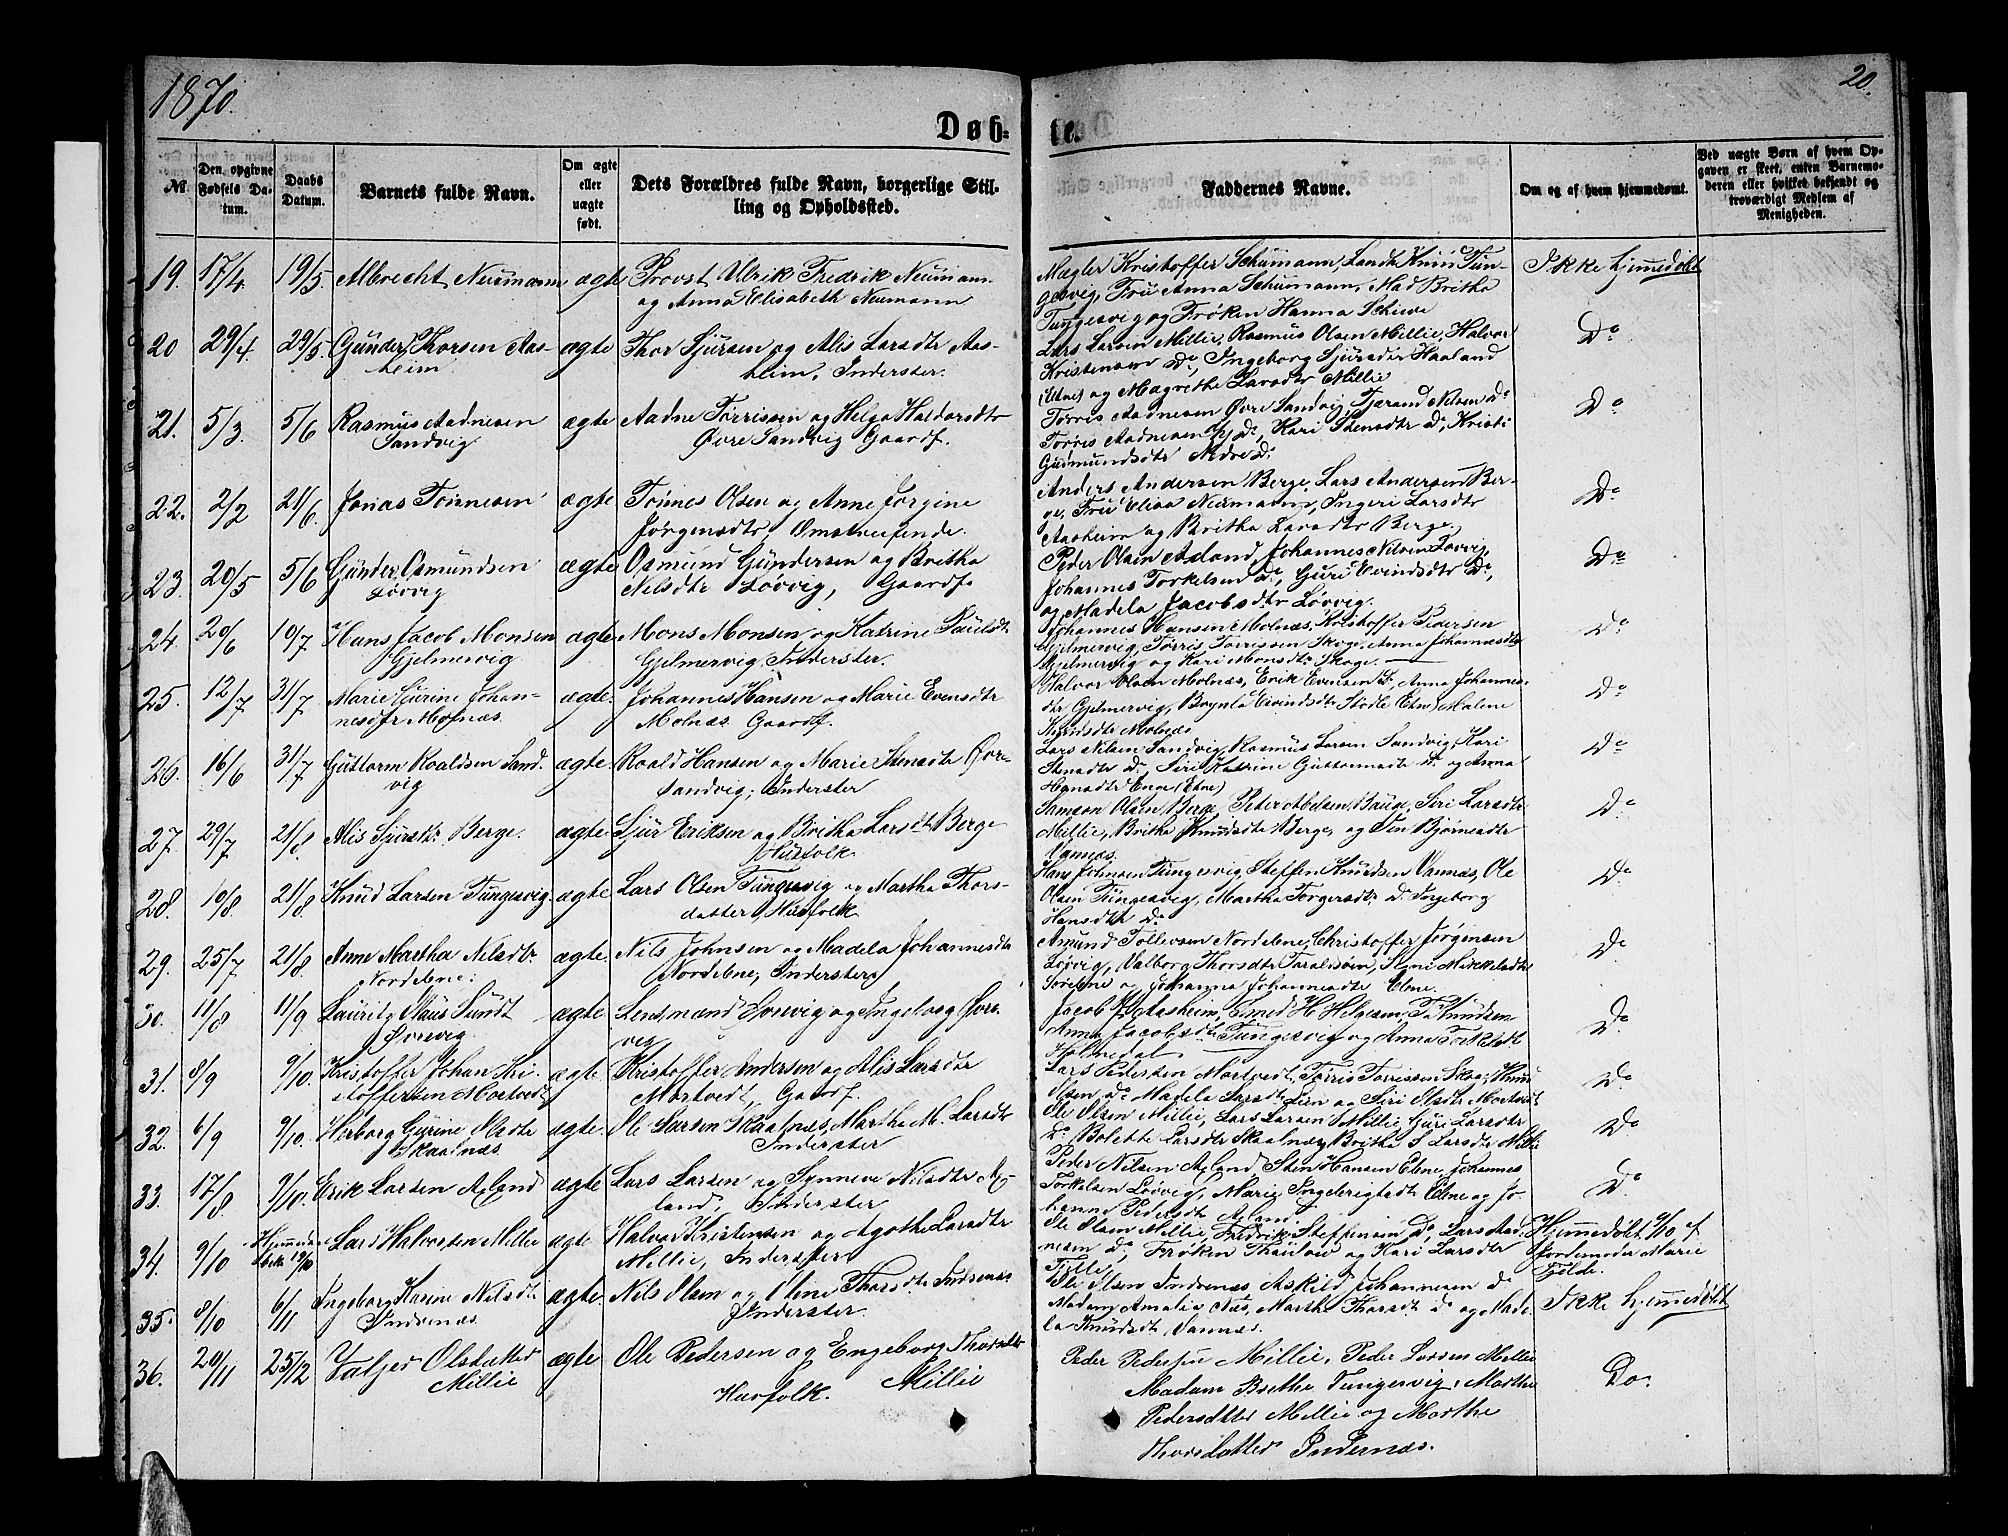 1870.
20.
Døb-
te.
№
Den opgivne Fødsels Datum.
Daabs Datum.
Barnets fulde Navn.
Om ægte eller uægte født.
Dets Forældres fulde Navn, borgerlige Stilling og Opholdssted.
Faddernes Navne.
Om og af hvem hjemmedøbt.
Ved uægte Børn af hvem Opgaven er skeet, enten Barnemoderen eller hvilket bekjendt og troværdigt Medlem af Menigheden.
19. 17/4 19/5. Albrecht Neumann ægte Provst Ulrik Fredrik Neumann
og Anna Elisabeth Neumann
Mægler Kristoffer Schumann, Landh. Knud Tun-
gesvig, Frü Anna Schumann, Mad Britha
Tungesvig og Frøken Hanna
Ikke hjemmedøbt
20 29/4. 29/5. Gunder Thorsen Aas-
heim
ægte Thor Sjursen og Alis Larsdtr Aas-
heim, Inderster.
Lars Larsen Millie, Rasmus Olsen Millie, Halvor
Kristensen Do, Ingeborg Sjursdtr Haaland
og Magrethe Larsdtr Millie
Do
21. 5/3. 5/6 Rasmus Aadnesen
Sandvig
ægte Aadne Tørrissen og Helga Haldorsdtr
Øvre Sandvig Gaardf.
Tørris Aadnesen Øvre Sandvig, Tjerand Nilsen Do
Tørris Aadnesen Do, Kari Stensdtr Do, Kristi
Gudmundsdtr Nedre Do.
Do
22. 2/2 21/6. Jonas Tønnesen ægte Tønnes Olsen og Anne Jorgine
Jørgensdtr, Omstreifende.
Anders Andersen Berge, Lars Andersen Ber-
ge, Frü Elisa Neumann, Ingeri Larsdtr
Aasheim og Britha Larsdtr Berge.
Do
23. 20/5 5/6 Gunder Osmundsen
Løvvig
ægte Osmund Gundersen og Britha
Nilsdtr Løvvig, Gaardf.
Peder Olsen Axland, Johannes Nilsen Løvvig,
Johannes Torkelsen Do, Guri Evindsdtr Do,
og Madela Jacobsdtr Løvvig.
Do
24. 20/6 10/7 Hans Jacob Monsen
Gjelmervig
ægte Mons Monsen og Katrine Paulsdtr
Gjelmervig, Inderster.
Johannes Hansen Molnæs, Kristoffer Pedersen
Gjelmervig, Tørris Tørrissen Skoge, Anna Johannesdtr
Gjelmervig og Kari Monsdtr Skoge.
Do
25. 12/7 31/7 Marie Gurine Johan-
nesdtr Molnæs.
ægte. Johannes Hansen og Marie Evensdtr
Molnæs Gaardf.
Halvor Olsen Molnæs, Erik Evensen Do, Anna Johannes-
dtr Gjelmervig, Brynla Evindsdtr Stødle (Etne) Malene
Knudsdtr Molnæs
Do
26. 16/6 31/7 Guttorm Roaldsen Sand-
vig
ægte. Roald Hansen og Marie Stensdtr Øvre-
sandvig, Inderster
Lars Nilsen Sandvig, Rasmus Larsen Sandvig, Kari
Stensdtr Do, Siri Katrine Guttormsdtr Do og Anna
Hansdtr Enge (Etne)
Do
27. 29/7 21/8. Alis Sjursdtr Berge. ægte Sjur Eriksen og Britha Larsdtr Berge
Husfolk
Samson Olsen Berge, Peder Abelsen Bauge, Siri Larsdtr
Millie, Britha Knudsdtr Berge og Bjørnsdtr
Vannæs.
Do
28. 10/8. 21/8 Knud Larsen Tungesvig. ægte Lars Olsen Tungesvig og Martha Thors-
datter, Husfolk
Hans Johnsen Tungesvig, Steffen Knudsen Vannæs, Ole
Olsen Tungesvig, Martha Torgersdtr Do Ingeborg
Hansdtr Do
Do
29. 25/7 21/8 Anne Martha Nilsdtr
Nordebne.
ægte. Nils Johnsen og Madela Johannesdtr
Nordebne, Inderster
Amund Tollevsen Nordebne, Christoffer Jørgensen
Løvvig, Valborg Thorsdtr, Signi Mikkelsdtr
og Johanna Johannesdtr Ebne.
Do
30. 11/8 11/9 Lauritz Claus Sundt
Ørevig
ægte Lensmand Ørevig og Ingeborg Øre-
vig
Jacob Aasheim, Smed H. Helgesen, Knudsen
Anna Jacobsdtr Tungesvig og Anna Torkelsdtr
Holmedal.
Do
31. 8/9 9/10. Kristoffer Johan Kri-
stoffersen Mortvedt
ægte Kristoffer Andersen og Alis Larsdtr
Mortvedt, Gaardf.
Lars Pedersen Mortvedt, Tørris Tørrissen Skoge, Knud
Olsen Do Madela Larsdtr Lien og Siri Olsdtr Mortvedt
Do
32. 6/9 9/10. Herborg Gurine Olsdtr
Skaalnæs
ægte. Ole Larsen Skaalnæs, Martha M. Larsdtr
Inderster
Ole Olsen Millie, Lars Larsen Millie, Guri Larsdtr
Do Bolette Larsdtr Skaalnæs, Britha S. Larsdtr Millie
Do
33. 17/8. 9/10. Erik Larsen Axland ægte Lars Larsen og Synneve Nilsdtr Ax-
land, Inderster
Peder Nilsen Axland, Sten Hansen Ebne, Johannes
Torkelsen Løvvig, Marie Ebne og Jo-
hanna Pedersdtr Axland
Do
34. 9/10 Hjemmedø-
bt 19/10
Lars Halvorsen Millie ægte Halvor Kristensen og Agothe Larsdtr
Millie, Inderster
Ole Olsen Millie, Fredrik Steffensen Do, Lars Aad-
nesen Do, Frøken Thaulow og Kari Larsdtr
Fjelde.
Hjemmedøbt af
Jordemoder Marie
Fjelde.
35. 8/10 6/11 Ingeborg Karine Nilsdtr
Indrenæs.
ægte. Nils Olsen og Oline Thorsdtr Indrenæs
Inderster
Ole Olsen Indrenæs Askild Johannesen Do
Madam Amalie Næs, Martha Thorsdtr Do og Made-
la Knudsdtr Vannæs.
Ikke hjemmedøbt
36. 20/11 25/12 Valjer Olsdatter
Millie
ægte Ole Pedersen og Engeborg Thorsdtr
Husfolk. Millie
Peder Pedersen Millie, Peder Larsen Millie
Madam Brethe Tungesvig, Marthe
Pedersdtter Millie og Marthe
Thorsdatter Indrenæs.
Do.